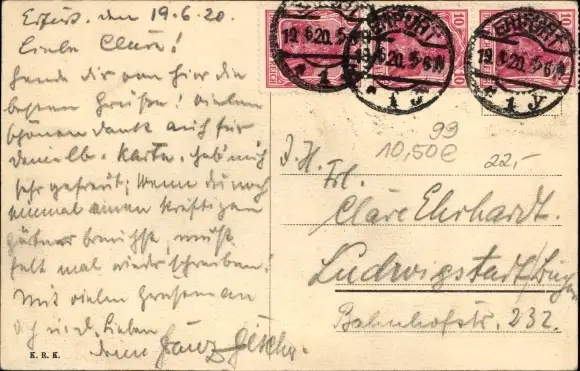 Erfurt, den 19.6.20.
Liebe Cläre!
Sende dir von hier die
besten Grüße! Vielen
schönen Dank auch für
deine lb. Karte. Hab' mich
sehr gefreut; Wenn du noch
einmal einen kräftigen
Gärtner brauchst, mußt
halt mal wieder schreiben!
Mit vielen Grüssen an
Lieben
dein Franz
K. R. K.
ERFURT
19.6.20. 5-6 N
1
ERFURT
6.20. 5-6 N
1
ERFURT
19.6.20. 5-6 N
1 y
10
10
99
10,50€
22,-
Frl.
Cläre Ehrhardt.
Ludwigstadt/
Bahnhofstr. 232.